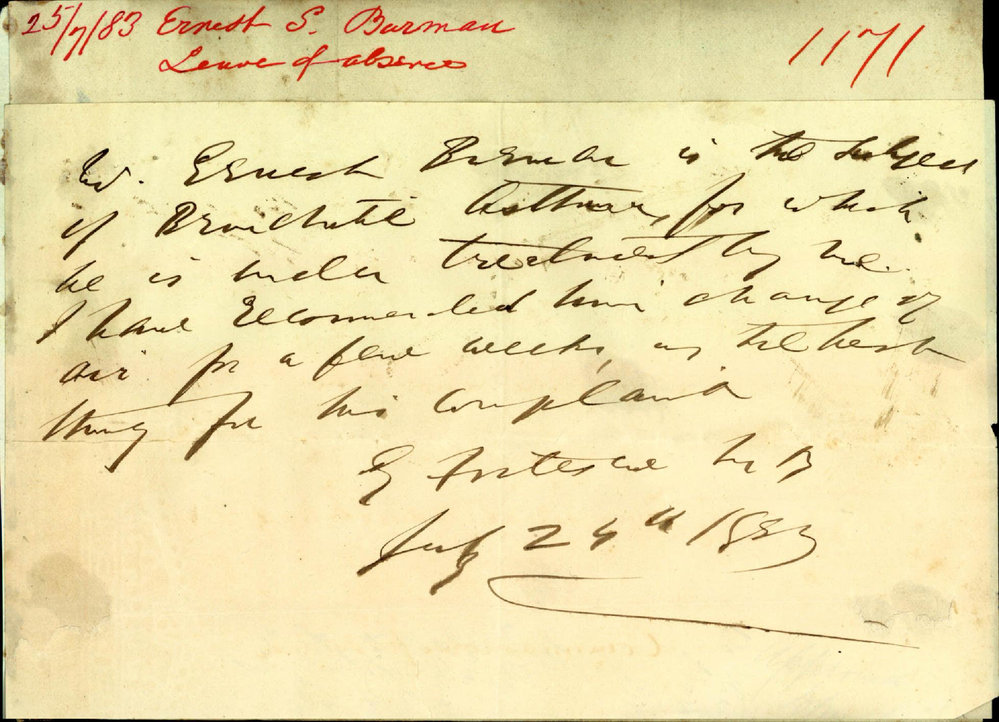 25/7/83 Ernest S. Burman
Leave of absence
1171
Mr. Ernest Burman is the subject
of Bronchitic Asthma, for which
he is under treatment by me.
I have recommended him change of
air for a few weeks, as the best
thing for his complaint
G Fortescue M B
July 24th 1883